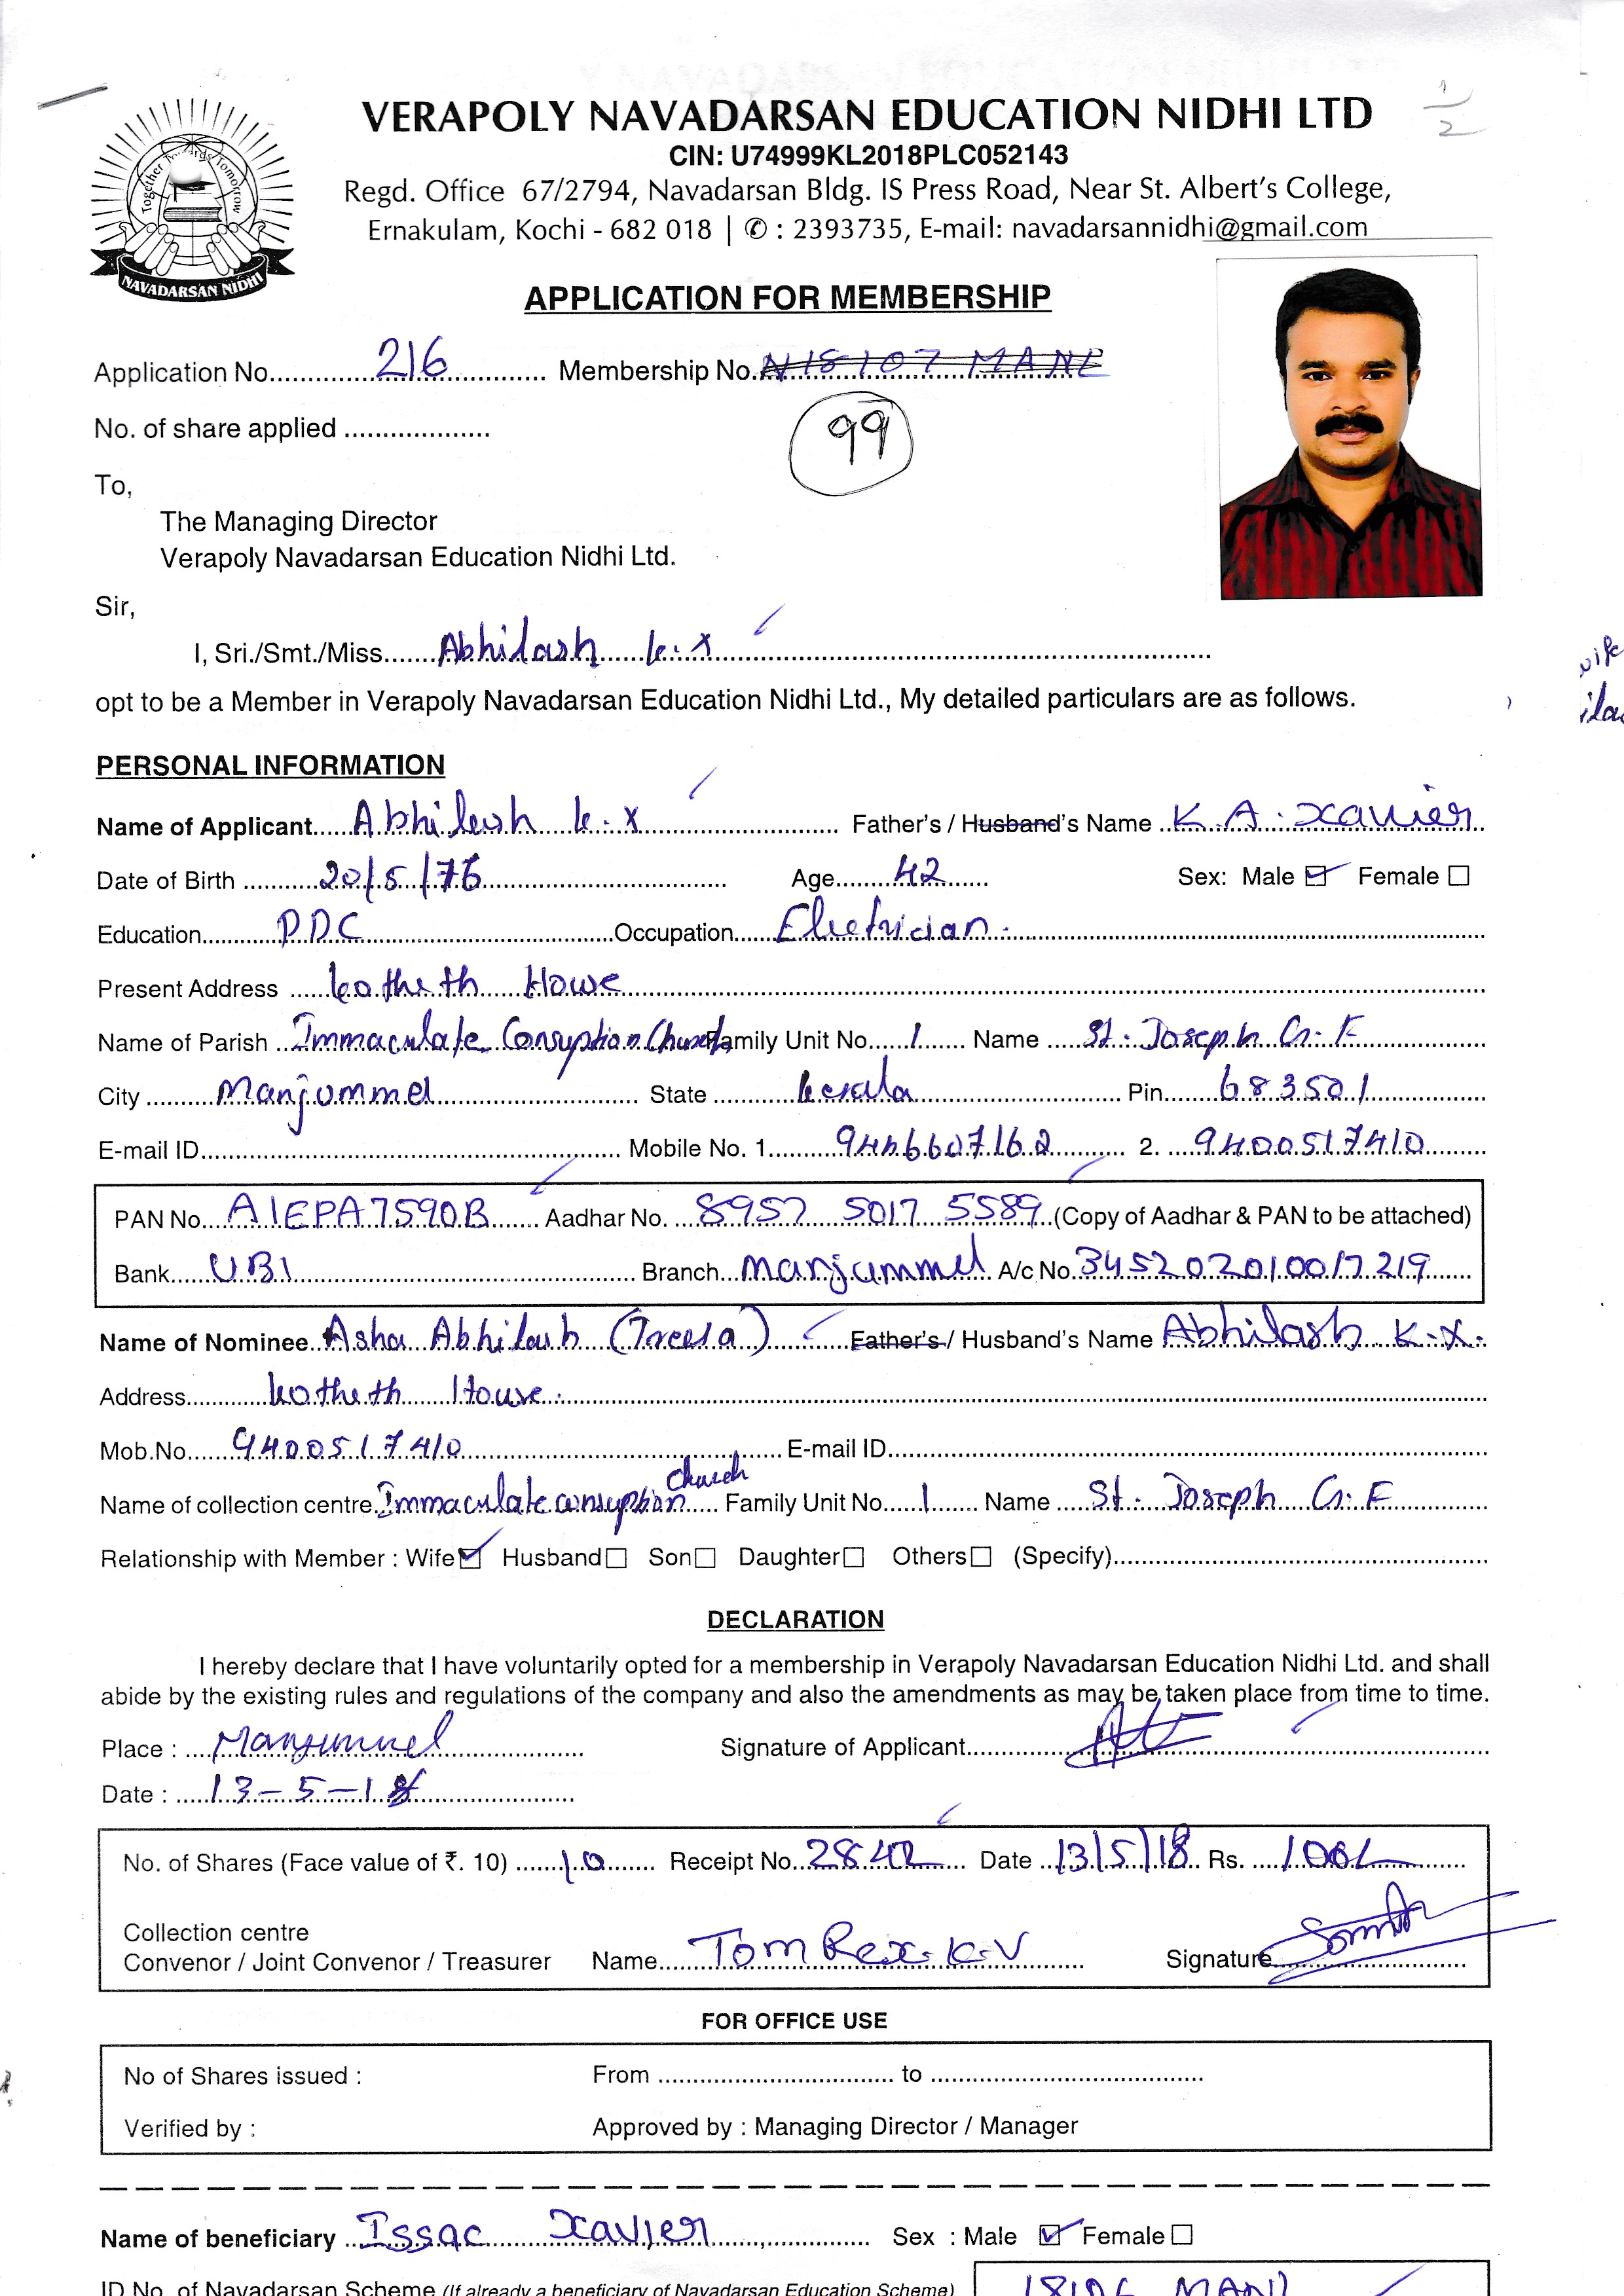 VERAPOLY NAVADARSAN EDUCATION NIDHI LTD
CIN: U74999KL2018PLC052143
Regd. Office 67/2794, Navadarsan Bldg. IS Press Road, Near St. Albert's College,
Ernakulam, Kochi - 682 018 | ✆ : 2393735, E-mail: navadarsannidhi@gmail.com
Together Towards Tomorrow
NAVADARSAN NIDHI
1/2
APPLICATION FOR MEMBERSHIP
Application No. 216 Membership No. N18107 MANL
No. of share applied ..................
99
To,
The Managing Director
Verapoly Navadarsan Education Nidhi Ltd.
Sir,
I, Sri./Smt./Miss. Abhilash K.X
wife
opt to be a Member in Verapoly Navadarsan Education Nidhi Ltd., My detailed particulars are as follows.
PERSONAL INFORMATION
Name of Applicant Abhilash K.X Father's / Husband's Name K.A. Xavier
Date of Birth 20/5/76 Age 42 Sex: Male ☑ Female ☐
Education PDC Occupation Eletrician.
Present Address Kotheth House
Name of Parish Immaculate Consyption Church Family Unit No. 1 Name St. Joseph G.F
City Manjummel State Kerala Pin 683501
E-mail ID Mobile No. 1. 9446607162 2. 9400517410
PAN No. AIEPA7590B Aadhar No. 8957 5017 5589 (Copy of Aadhar & PAN to be attached)
Bank UBI Branch Manjummel A/c No. 345202010017219
Name of Nominee Asha Abhilash (Treesa) Father's / Husband's Name Abhilash K.X.
Address Kotheth House.
Mob.No. 9400517410 E-mail ID
Name of collection centre Immaculate consyption church Family Unit No. 1 Name St. Joseph G.F
Relationship with Member : Wife ☑ Husband ☐ Son ☐ Daughter ☐ Others ☐ (Specify)
DECLARATION
I hereby declare that I have voluntarily opted for a membership in Verapoly Navadarsan Education Nidhi Ltd. and shall
abide by the existing rules and regulations of the company and also the amendments as may be taken place from time to time.
Place : Manjummel Signature of Applicant
Date : 13-5-18
No. of Shares (Face value of ₹. 10) 10 Receipt No. 2842 Date 13/5/18 Rs. 100/-
Collection centre
Convenor / Joint Convenor / Treasurer Name Tom Rex. K.V Signature
FOR OFFICE USE
No of Shares issued : From to
Verified by : Approved by : Managing Director / Manager
Name of beneficiary Issac Xavier Sex : Male ☑ Female ☐
ID No. of Navadarsan Scheme (If already a beneficiary of Navadarsan Education Scheme) 18106 MANL